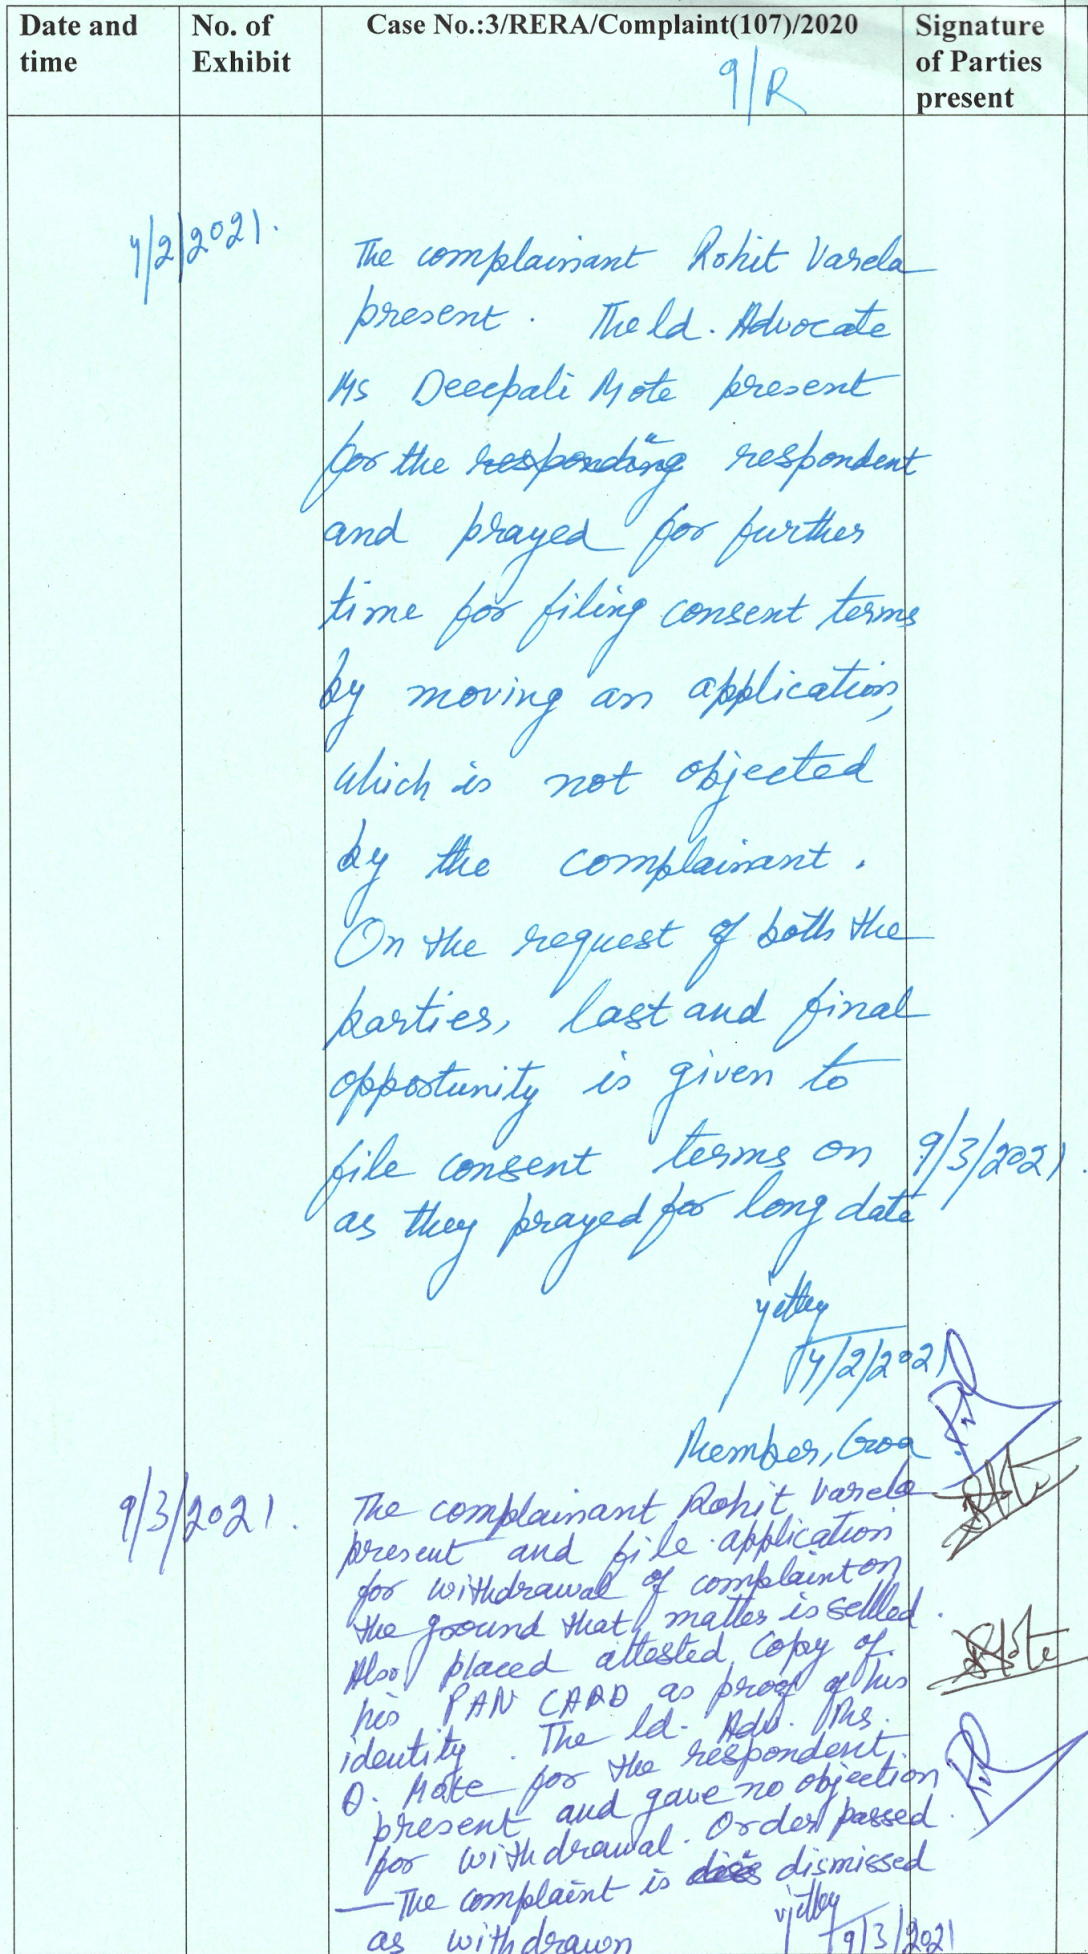 Date and time
No. of Exhibit
Case No.:3/RERA/Complaint(107)/2020
Signature of Parties present
9/R
4/2/2021.
The complainant Rohit Varela
present. The ld. Advocate
Ms Deeepali Mote present
for the responding respondent
and prayed for further
time for filing consent terms
by moving an application,
which is not objected
by the complainant.
On the request of both the
parties, last and final
opportunity is given to
file consent terms on 9/3/2021.
as they prayed for long date
4/2/2021
Member, Goa
9/3/2021.
The complainant Rohit Varela
present and file application
for withdrawal of complaint on
the ground that matter is settled.
Also placed attested copy of
his PAN CARD as proof of his
identity. The ld. Adv. Ms.
D. Mote for the respondent
present and gave no objection
for withdrawal. Order passed.
—The complaint is dismissed
as withdrawn
9/3/2021